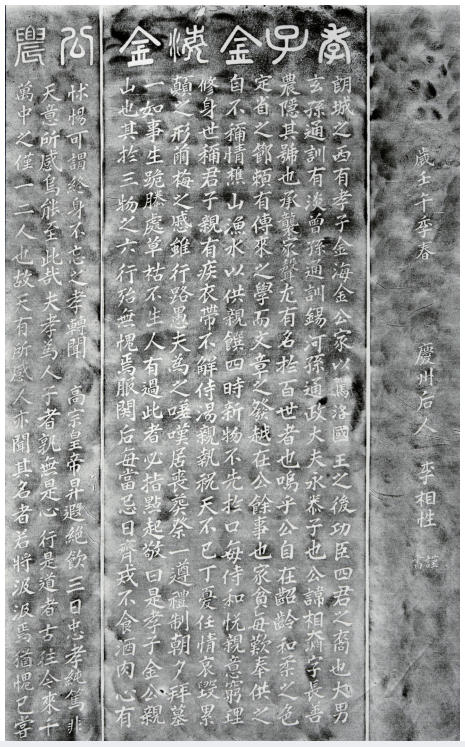 孝子金海金公農
歲壬午季春 慶州后人 李相性 謹書
朗城之西有孝子金海金公家以駕洛國王之後功臣四君之裔也九男
玄孫通訓有浚曾孫通訓錫河孫通政大夫永泰子也公諱相奫字長善
農隱其號也承襲家聲尤有名於百世者也嗚乎公自在齠齡和柔之色
定省之節頗有傳來之學而文章之發越在公餘事也家貧每歎奉供之
自不稱情樵山漁水以供親饌四時新物不先於口每侍和悅親意窮理
修身世稱君子親有疾衣帶不解侍湯親執祝天不已丁憂任情哀毀累
顚之形前梅之感雖行路愚夫為之嗟嘆居喪葬祭一遵禮制朝夕拜墓
一如事生跪膝處草枯不生人有過此者必指點起敬曰是孝子金公親
山也其於三物之六行殆無愧焉服闋后每當忌日齊戒不食酒肉心有
怵惕可謂終身不忘之孝轉聞 高宗皇帝昇遐絕飮三日忠孝純篤非
天意所感烏能至此哉夫孝為人子者孰無是心行是道者古往今來千
萬中之僅一二人也故天有所感人亦聞其名者若將汲汲焉猶愧已掌